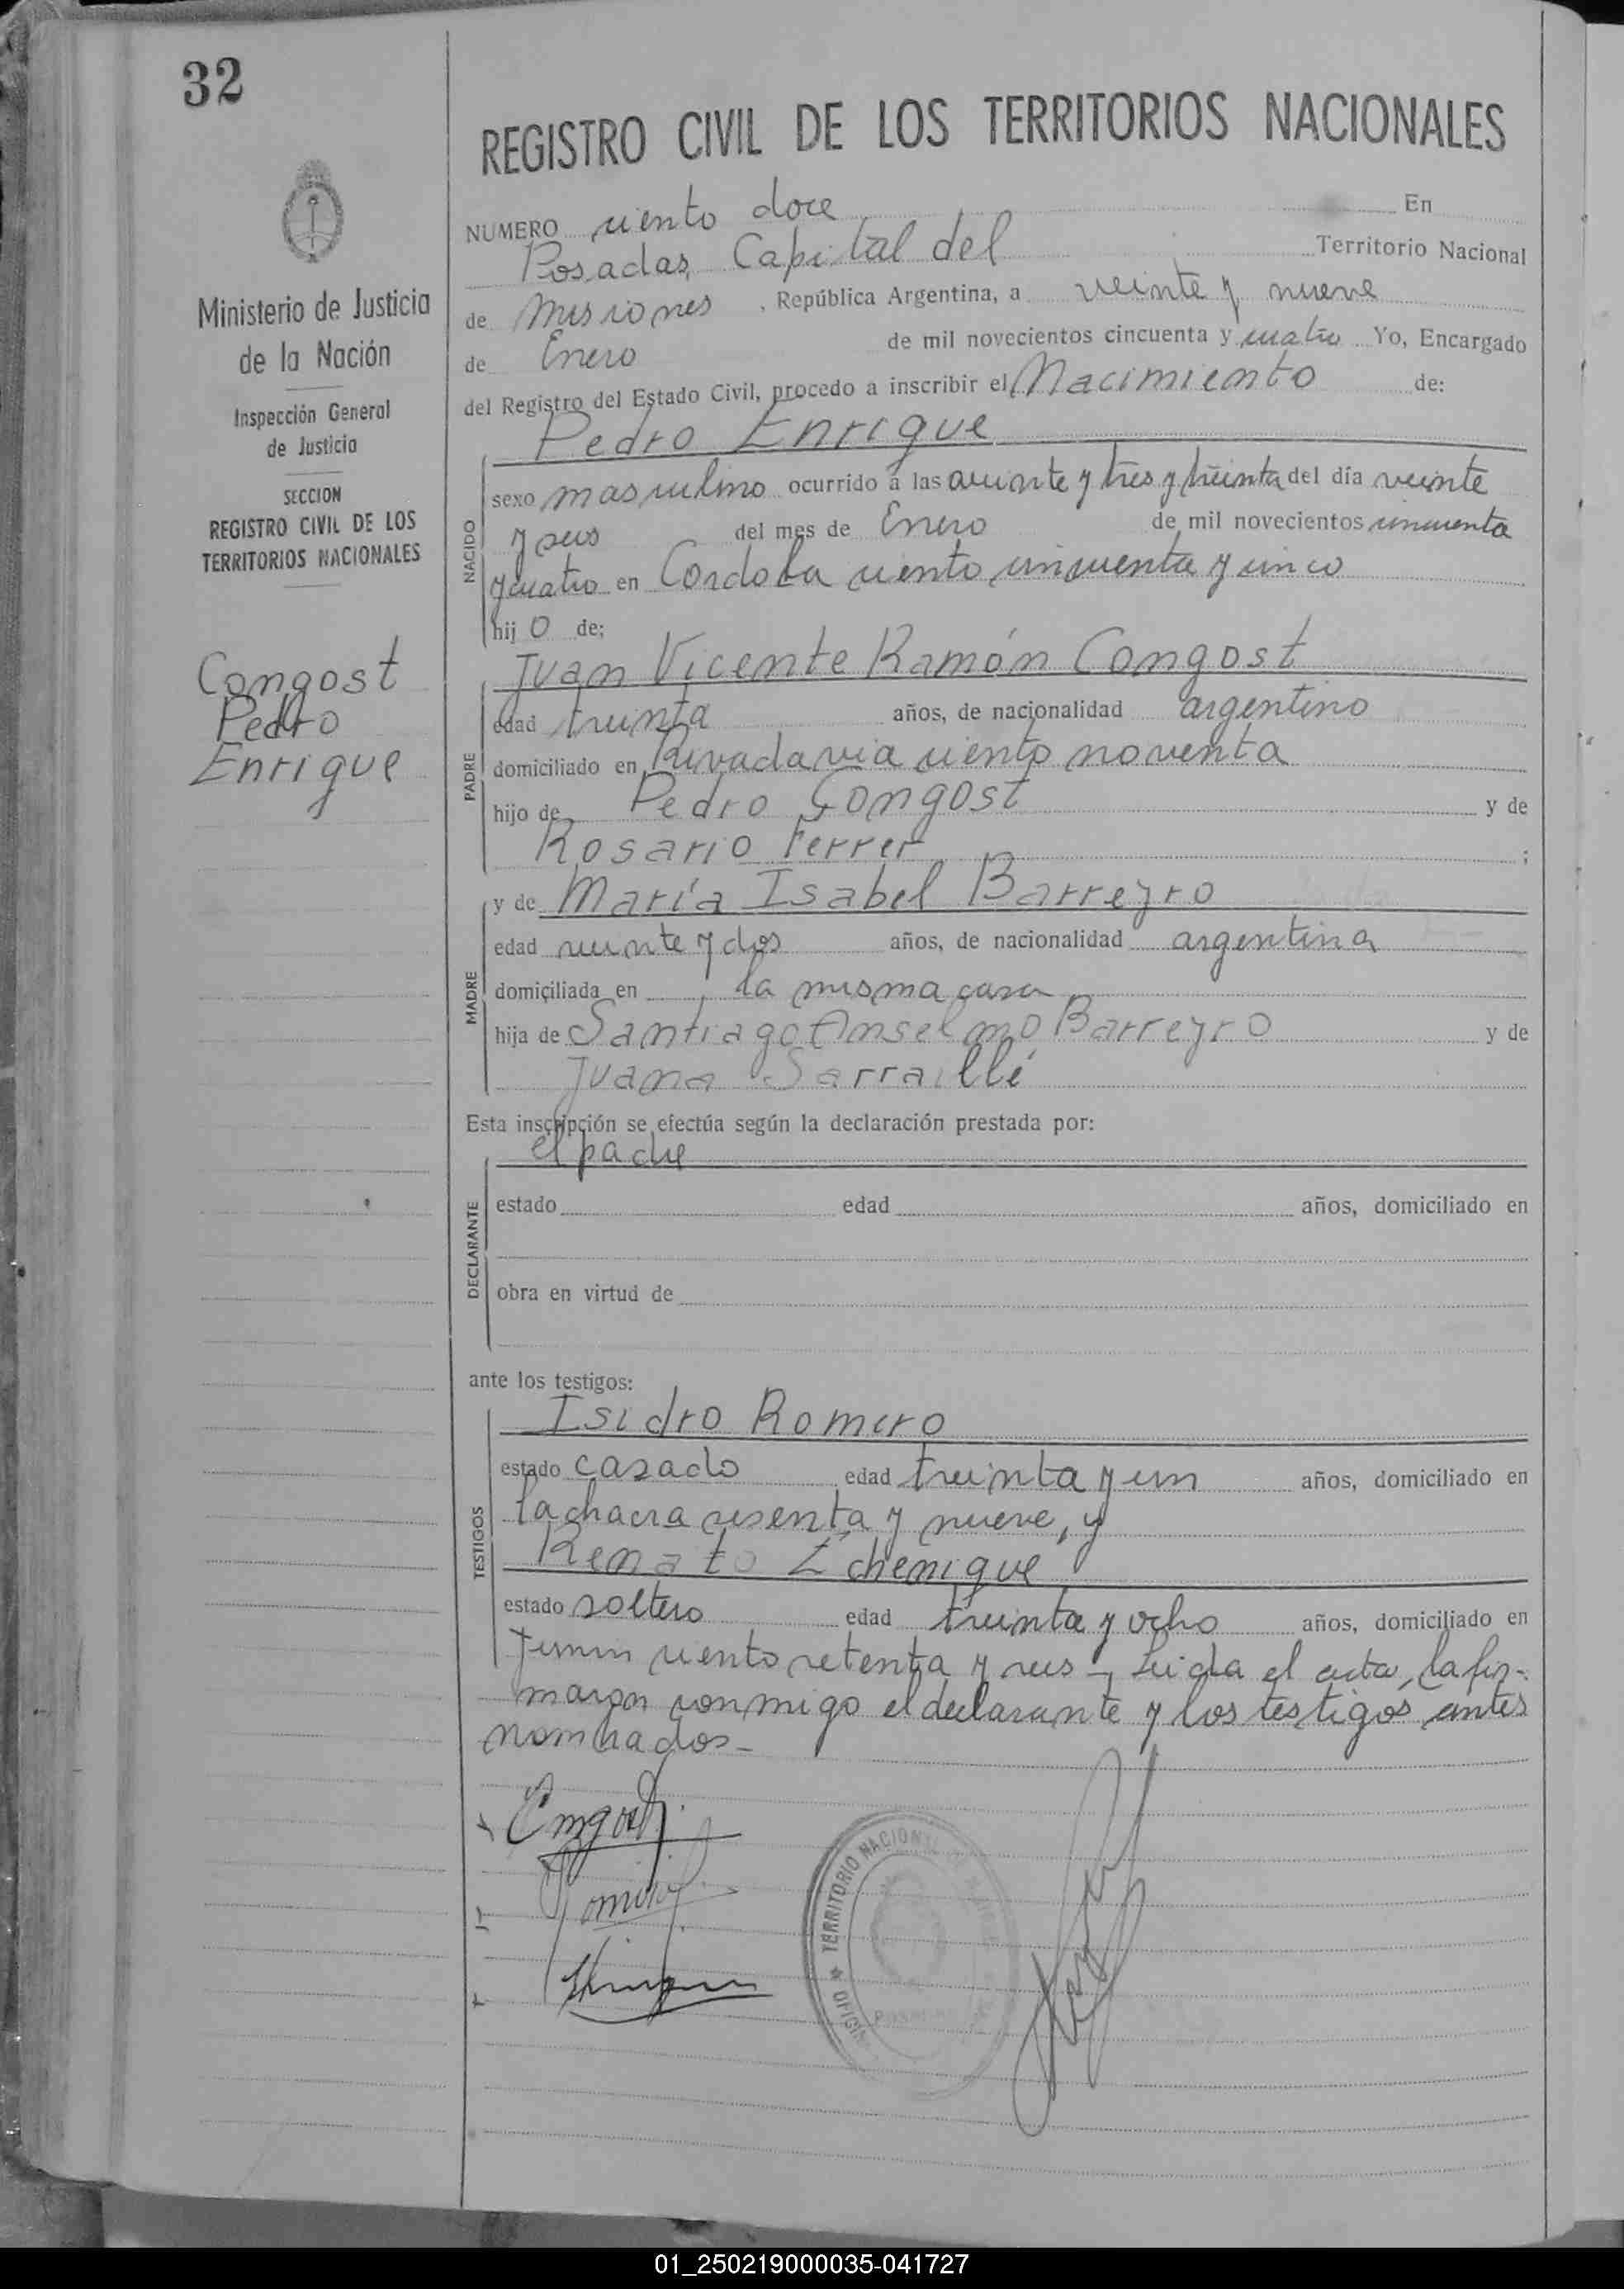 32
REGISTRO CIVIL DE LOS TERRITORIOS NACIONALES
NUMERO ciento doce En
Posadas, Capital del Territorio Nacional
de Misiones , República Argentina, a veinte y nueve
de Enero de mil novecientos cincuenta y cuatro Yo, Encargado
del Registro del Estado Civil, procedo a inscribir el Nacimiento de:
Pedro Enrique
NACIDO
sexo masculino ocurrido a las veinte y tres y treinta del día veinte
y seis del mes de Enero de mil novecientos cincuenta
y cuatro en Cordoba ciento cincuenta y cinco
hij o de;
Ministerio de Justicia
de la Nación
Inspección General
de Justicia
SECCION
REGISTRO CIVIL DE LOS
TERRITORIOS NACIONALES
Congost
Pedro
Enrique
PADRE
Juan Vicente Ramón Congost
edad treinta años, de nacionalidad argentino
domiciliado en Rivadavia ciento noventa
hijo de Pedro Congost y de
Rosario Ferrer ;
MADRE
y de María Isabel Barreyro
edad veinte y dos años, de nacionalidad argentina
domiciliada en la misma casa
hija de Santiago Anselmo Barreyro y de
Juana Sarraillé
Esta inscripción se efectúa según la declaración prestada por:
el padre
DECLARANTE
estado edad años, domiciliado en
obra en virtud de
ante los testigos:
TESTIGOS
Isidro Romero
estado casado edad treinta y un años, domiciliado en
la chacra sesenta y nueve, y
Renato Echenique
estado soltero edad treinta y ocho años, domiciliado en
Junin ciento setenta y seis – Leida el acta, la fir-
maron conmigo el declarante y los testigos antes
nombrados –
TERRITORIO NACIONAL
01_250219000035-041727